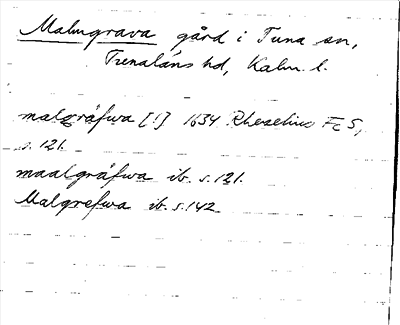 Malmgrava gård i Tuna sn,
Tunaläns hd, Kalm. l.
malgräfwa [!] 1634 Rhezelius FcS,
s. 121.
maalgräfwa ib. s. 121.
Malgrefwa ib. s. 142